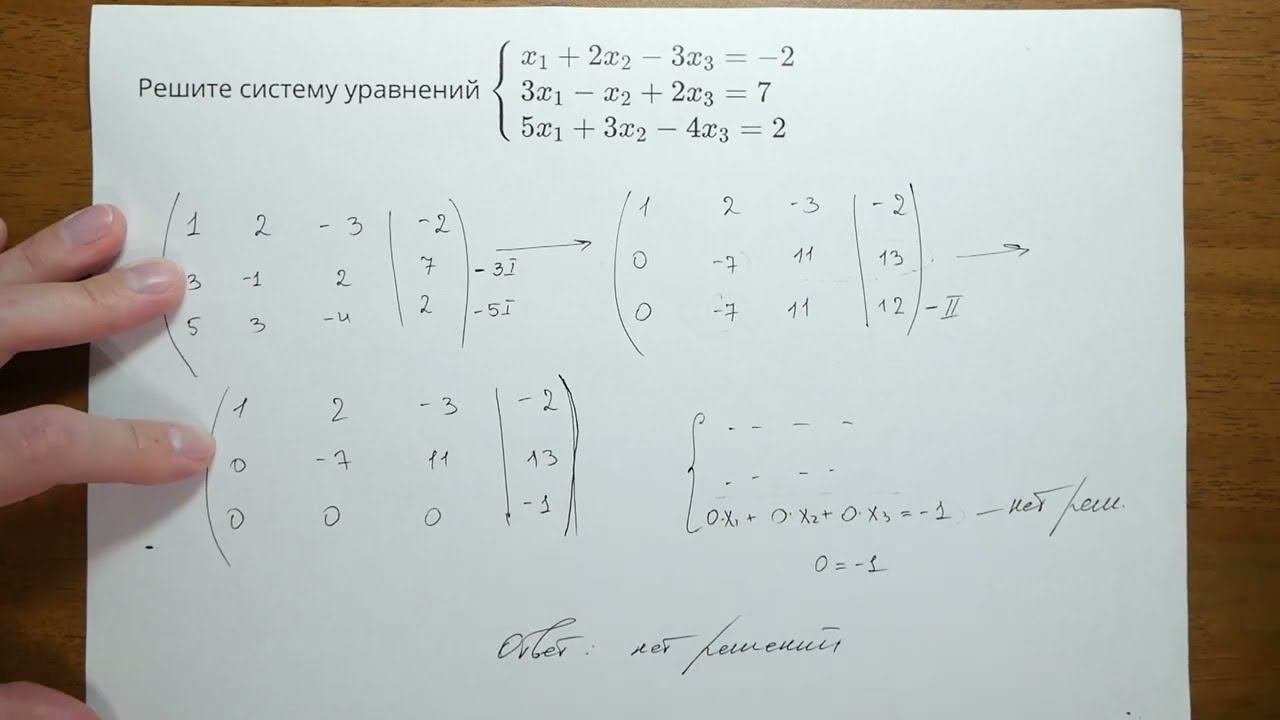 Решите систему уравнений
x₁ + 2x₂ − 3x₃ = −2
3x₁ − x₂ + 2x₃ = 7
5x₁ + 3x₂ − 4x₃ = 2
1 2 -3 | -2
3 -1 2 | 7 -3I
5 3 -4 | 2 -5I
1 2 -3 | -2
0 -7 11 | 13
0 -7 11 | 12 -II
1 2 -3 | -2
0 -7 11 | 13
0 0 0 | -1
0·x₁ + 0·x₂ + 0·x₃ = -1 — нет реш.
0 = -1
Ответ: нет решений